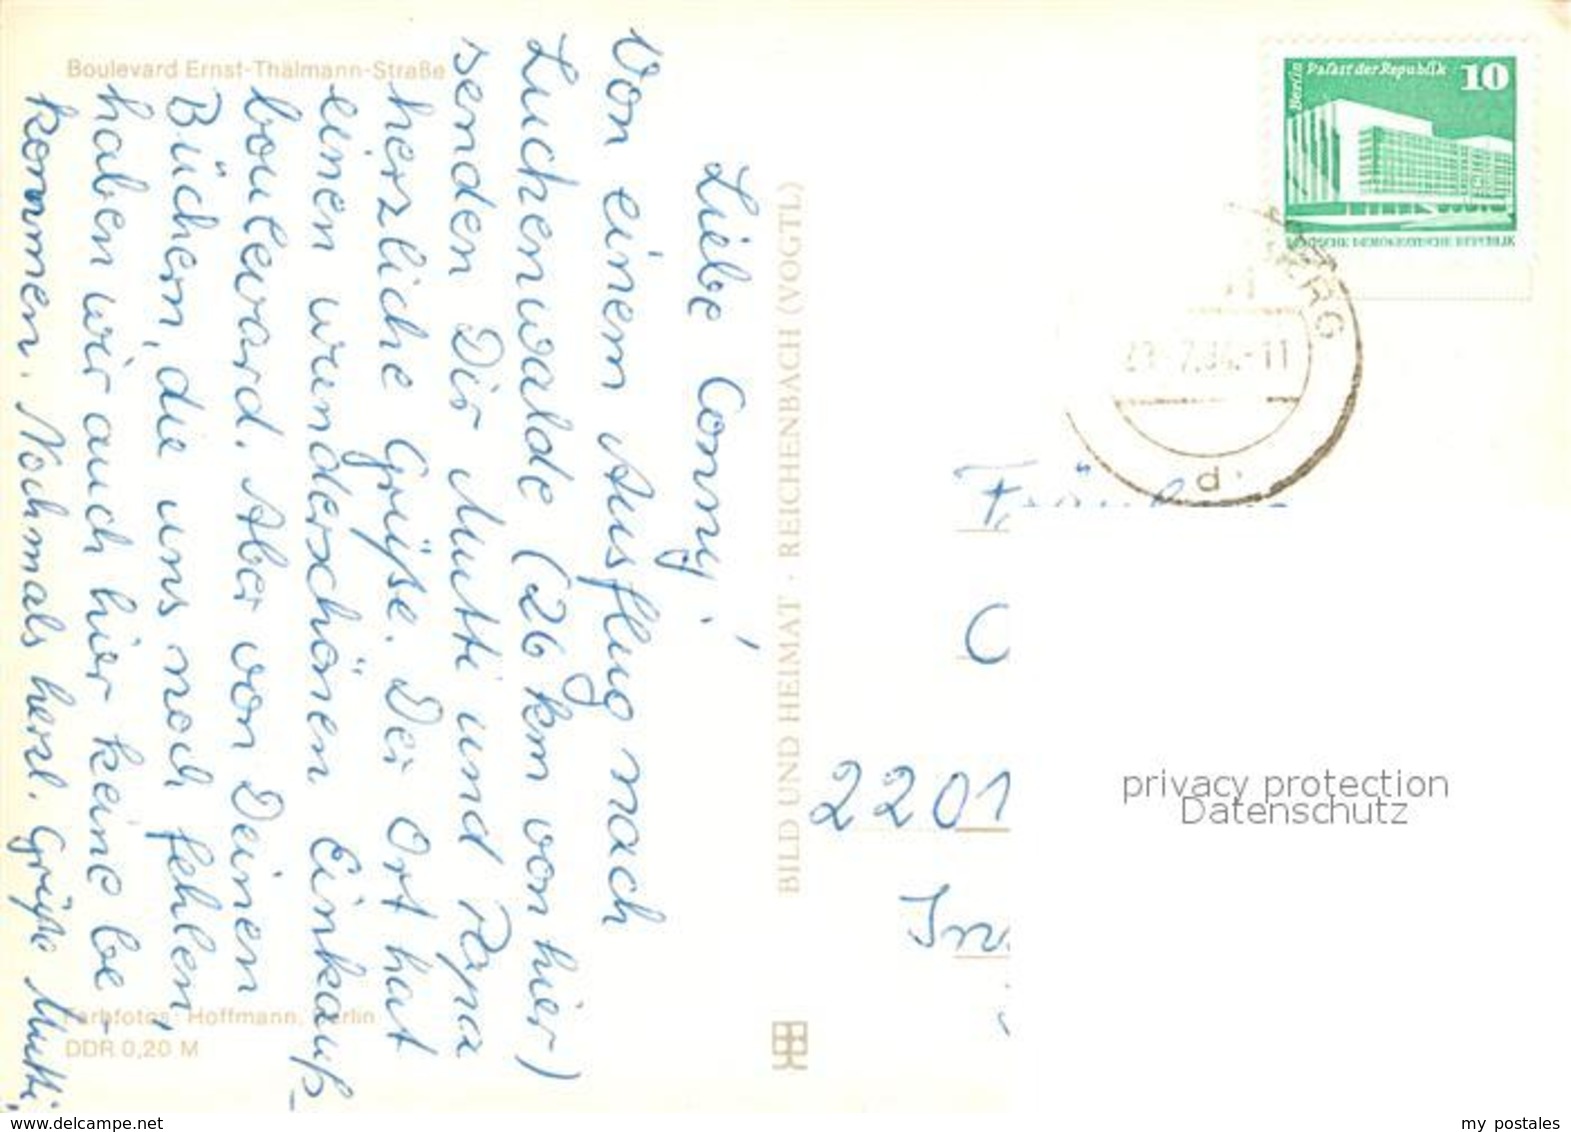 Boulevard Ernst-Thälmann-Straße
Liebe Conny!
Von einem Ausflug nach
Luckenwalde (26 km von hier)
senden Dir Mutti und Papa
herzliche Grüße. Der Ort hat
einen wunderschönen Einkaufs-
boulevard. Aber von Deinen
Büchern, die uns noch fehlen,
haben wir auch hier keine be-
kommen. Nochmals herzl. Grüße Mutti,
Farbfotos: Hoffmann, Berlin
DDR 0,20 M
BILD UND HEIMAT · REICHENBACH (VOGTL)
Berlin
Palast der Republik
10
DEUTSCHE DEMOKRATISCHE REPUBLIK
7.84.-11
d
C
2201
privacy protection
Datenschutz
www.delcampe.net
my postales